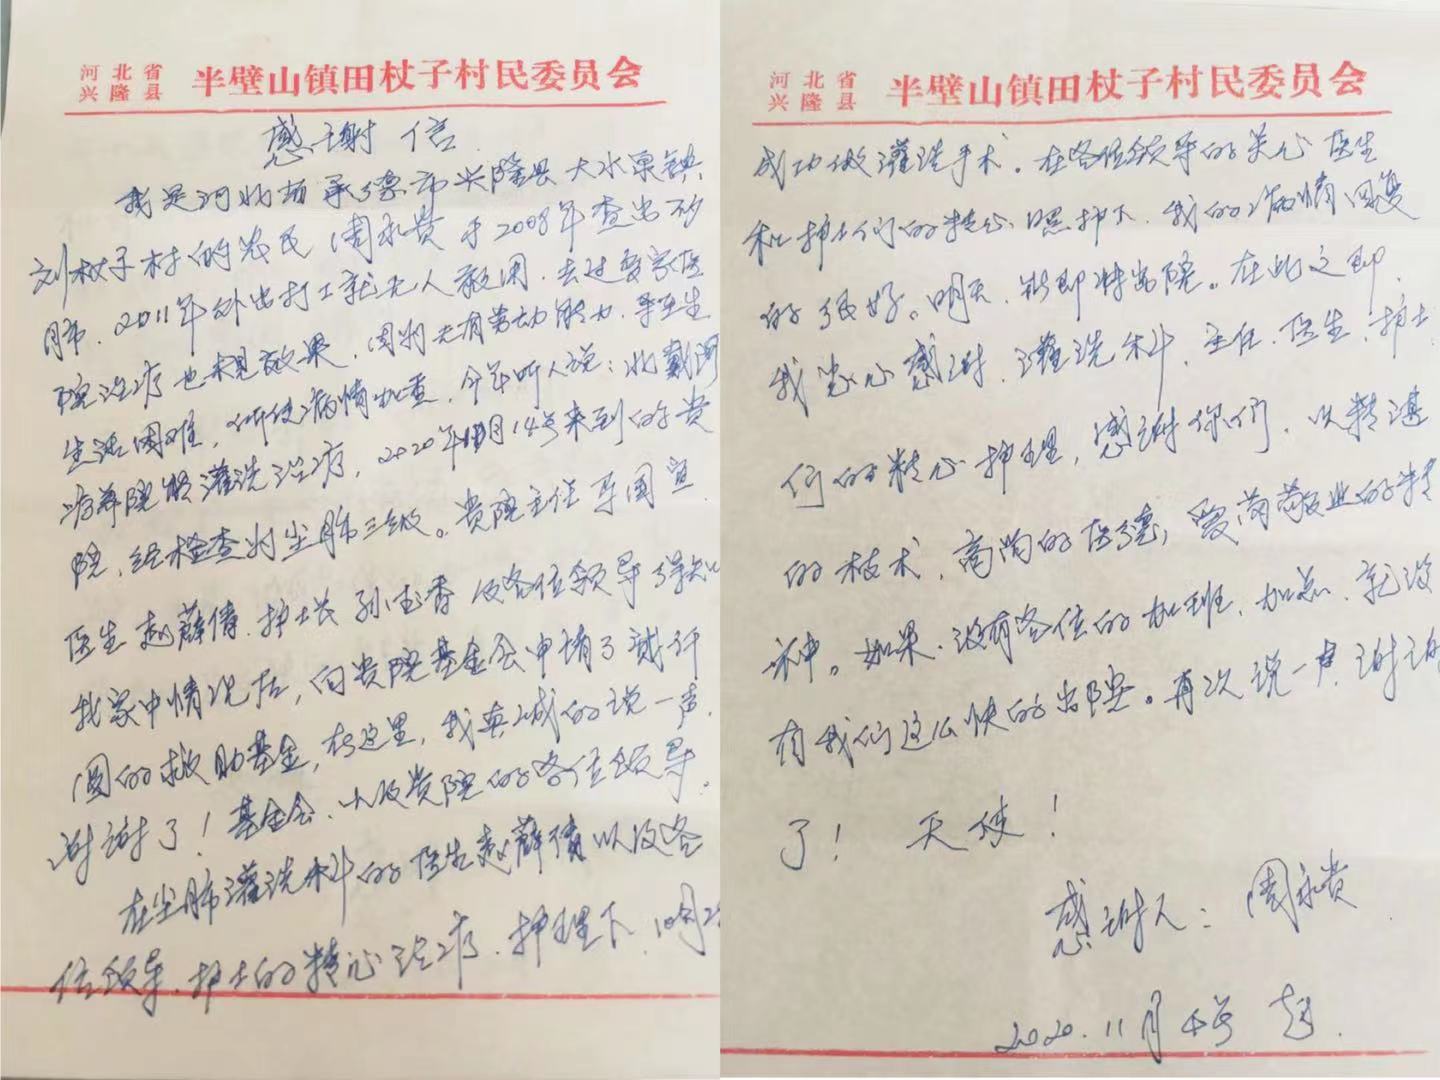 河北省
兴隆县
半壁山镇田杖子村民委员会
感谢信
我是河北省承德市兴隆县大水泉镇
刘杖子村的农民周永贵于2008年查出矽
肺，2011年外出打工就无人敢用，去过多家医
院治疗也未见效果，因为失有劳动能力，导至生
生活困难，所使病情加重，今年听人说：北戴河
疗养院能灌洗治疗，2020年10月14号来到的贵
院，经检查为尘肺三级。贵院主任
医生赵薛倩，护士长孙志香及各位领导得知
我家中情况后，向贵院基金会申请了贰仟
圆的救助基金，在这里，我真诚的说一声，
谢谢了！基金会、以及贵院的各位领导
在尘肺灌洗科的医生赵薛倩以及各
位领导、护士的精心治疗、护理下，10月2
河北省
兴隆县
半壁山镇田杖子村民委员会
成功做灌洗手术。在各位领导的关心医生
和护士们的精心照护下，我的病情回复
的很好。明天，我即将出院。在此之即，
我衷心感谢，灌洗科，主任，医生，护士
们的精心护理，感谢你们，以精湛
的技术，高尚的医德，爱岗敬业的精
神。如果，没有各位的加班，加点，就没
有我们这么快的出院。再次说一声谢谢
了！天使！
感谢人：周永贵
2020.11月4号